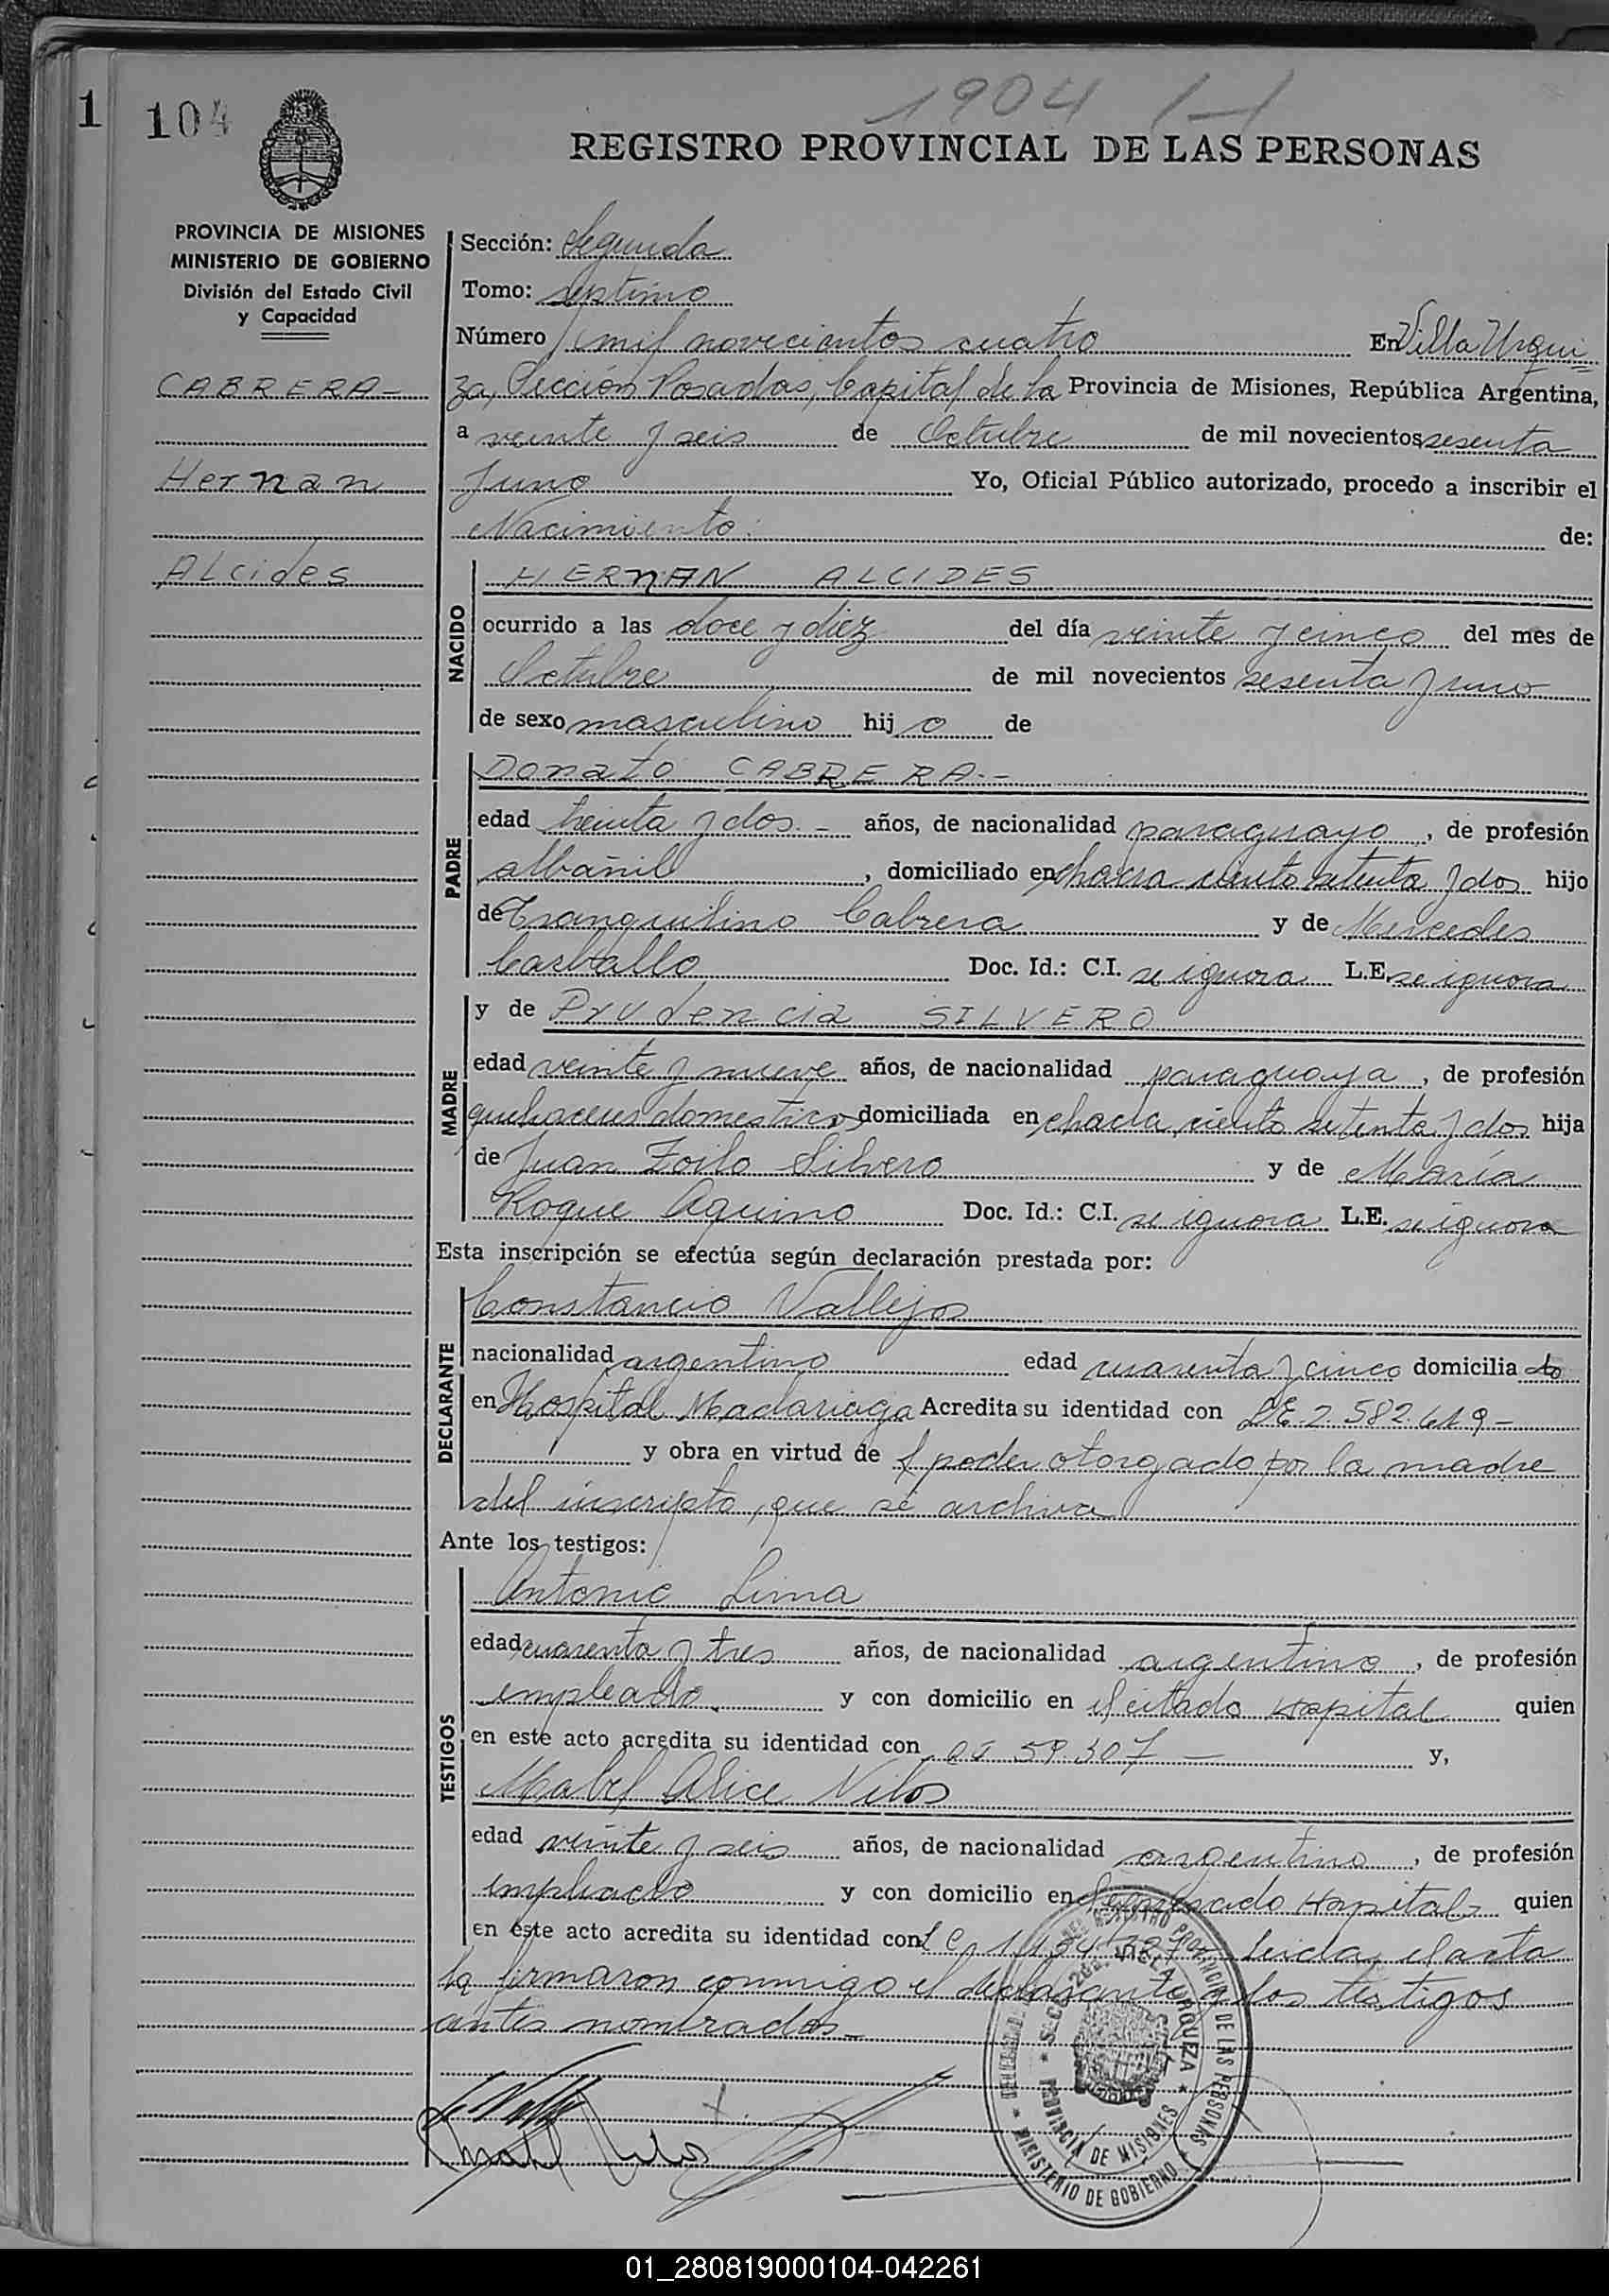 1904
1 104
REGISTRO PROVINCIAL DE LAS PERSONAS
PROVINCIA DE MISIONES
MINISTERIO DE GOBIERNO
División del Estado Civil
y Capacidad
CABRERA-
Hernan
Alcides
Sección: Segunda
Tomo: septimo
Número mil novecientos cuatro En Villa Urqui
za, Sección Posadas, Capital de la Provincia de Misiones, República Argentina,
a veinte y seis de Octubre de mil novecientos sesenta
y uno Yo, Oficial Público autorizado, procedo a inscribir el
Nacimiento: de:
NACIDO
HERNAN ALCIDES
ocurrido a las doce y diez del día veinte y cinco del mes de
Octubre de mil novecientos sesenta y uno
de sexo masculino hijo de
PADRE
Donato CABRERA.-
edad treinta y dos.- años, de nacionalidad paraguayo, de profesión
albañil, domiciliado en chacra ciento setenta y dos hijo
de Tranquilino Cabrera y de Mercedes
Carballo Doc. Id.: C.I. se ignora L.E. se ignora
MADRE
y de Prudencia SILVERO
edad veinte y nueve años, de nacionalidad paraguaya, de profesión
quehaceres domesticos domiciliada en chacra ciento setenta y dos hija
de Juan Zoilo Silvero y de María
Roque Aquino Doc. Id.: C.I. se ignora L.E. se ignora
Esta inscripción se efectúa según declaración prestada por:
DECLARANTE
Constancio Vallejos
nacionalidad argentino edad cuarenta y cinco domiciliado
en Hospital Madariaga Acredita su identidad con LE 2.582.619-
y obra en virtud de poder otorgado por la madre
del inscripto, que se archiva
Ante los testigos:
TESTIGOS
Antonio Lima
edad cuarenta y tres años, de nacionalidad argentino, de profesión
empleado y con domicilio en el citado Hospital quien
en este acto acredita su identidad con 59.307- y,
Mabel Alice Nilos
edad veinte y seis años, de nacionalidad argentina, de profesión
empleado y con domicilio en Hospital quien
en este acto acredita su identidad con LC leida el acta
la firmaron conmigo el declarante y los testigos
antes nombrados-
REGISTRO PROVINCIAL DE LAS PERSONAS
VILLA URQUIZA
PROVINCIA DE MISIONES
MINISTERIO DE GOBIERNO
01_280819000104-042261